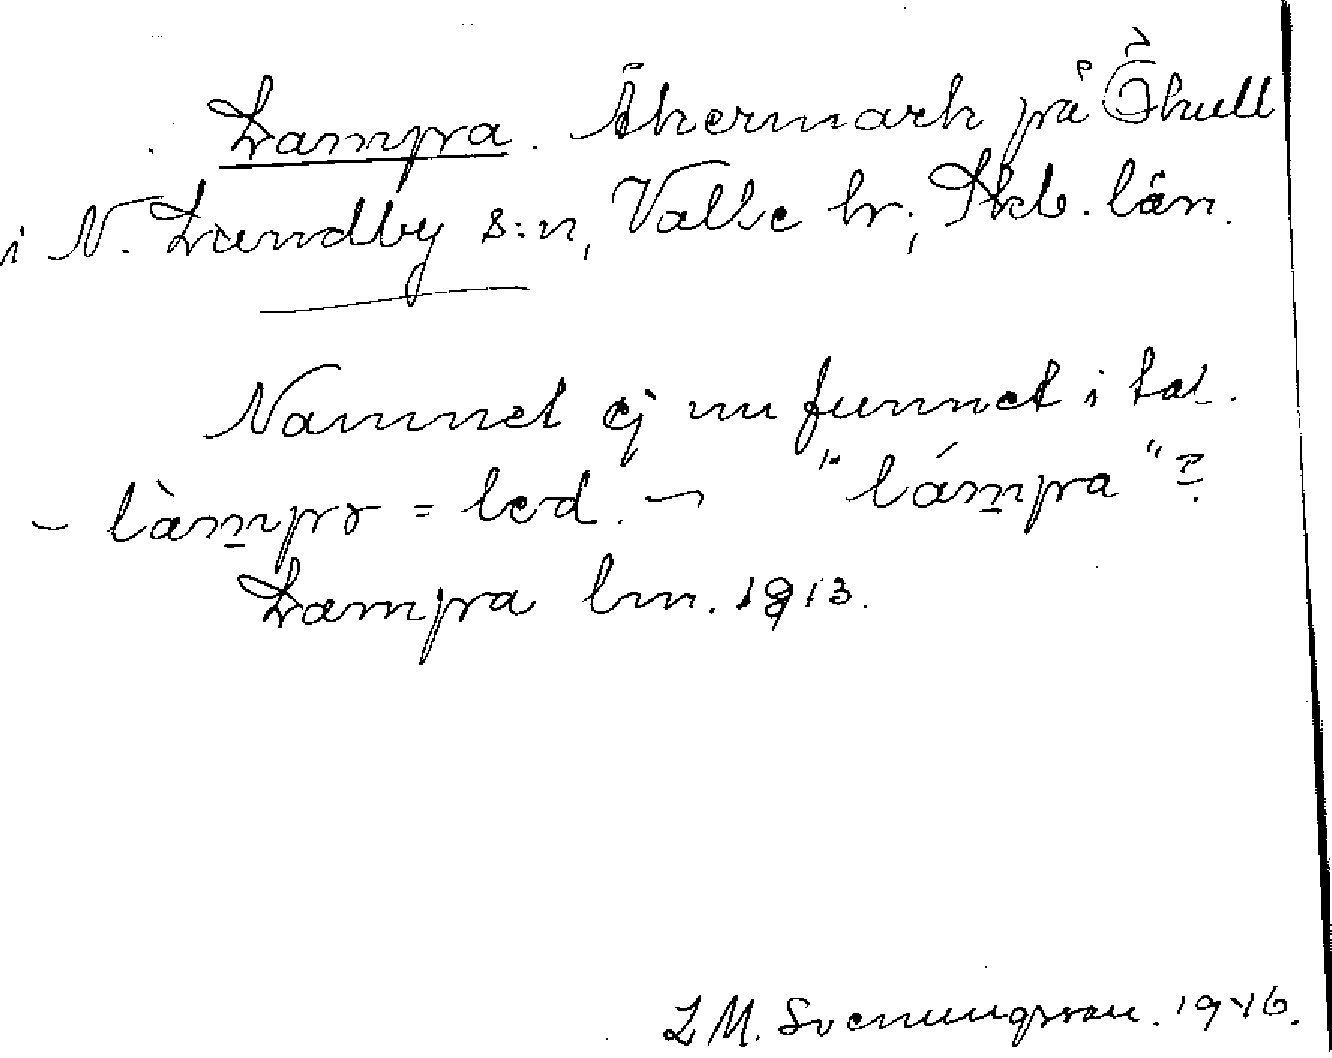 Lampra. Åkermark på Ökull
i N. Lundby s:n, Valle hr, Skb. län.
Namnet ej nu funnet i tal.
- làmpr = led. - "lámpra"?
Lampra lm. 1913.
L M. Svenungsson. 1946.